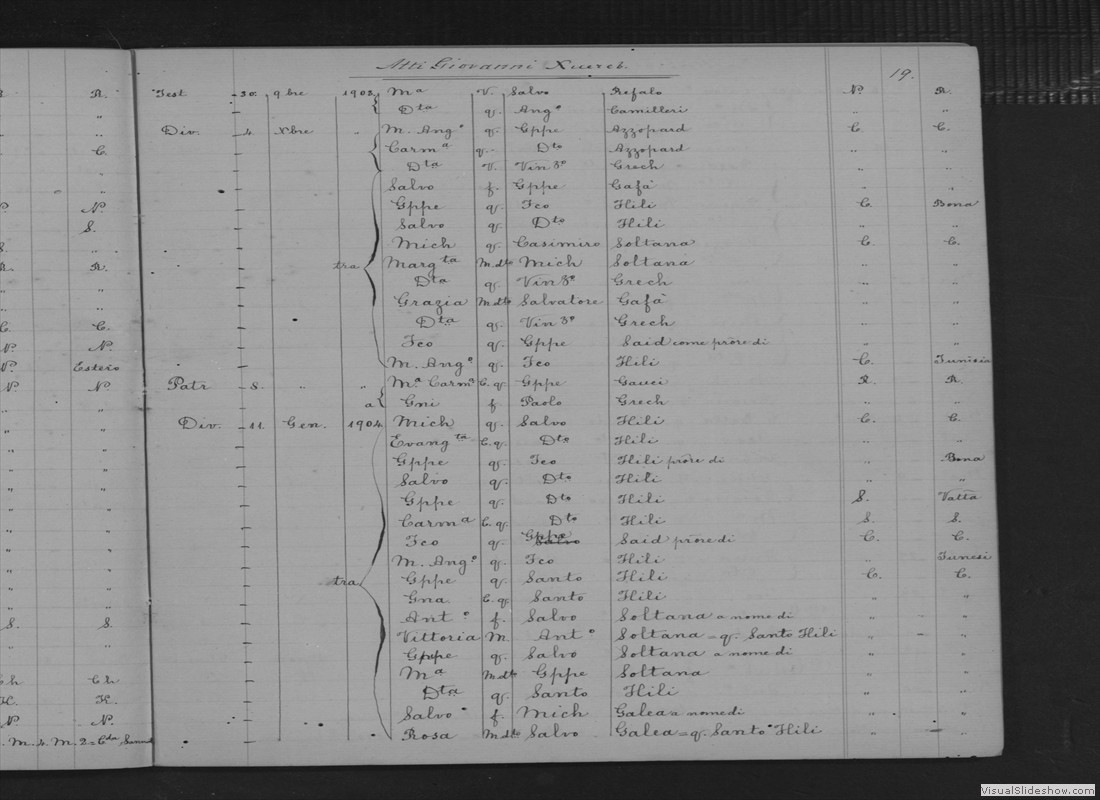 Atti Giovanni Xuereb.
19.
R. Test 30. 9bre 1903. Ma V. Salvo Refalo N. R.
„ Dta q. Ango Camilleri „ „
„ Div. 4. Xbre „ M. Ango q. Gppe Azzopard C. C.
C. Carma q. Dto Azzopard „ „
„ Dta V. Vinzo Grech „ „
„ Salvo f. Gppe Gafà „ „
N. Gppe q. Fco Hili C. Bona
S. Salvo q. Dto Hili „ „
S. „ Mich q. Casimiro Soltana C. C.
R. R. tra Margta M. dto Mich Soltana „ „
„ Dta q. Vinzo Grech „ „
„ Grazia Mdto Salvatore Gafà „ „
C. C. Dta q. Vinzo Grech „ „
N. N. Fco q. Gppe Said come prore di „ „
N. Estero M. Ango q. Fco Hili C. Tunisia
N. N. Patr 8. „ „ Ma Carma C. q. Gppe Gauci R. R.
„ „ a Gni f. Paolo Grech „ „
„ „ Div. 11 Gen. 1904. Mich q. Salvo Hili C. C.
„ „ Evangta C. q. Dto Hili „ „
„ „ Gppe q. Fco Hili prore di „ Bona
„ „ Salvo q. Dto Hili „ „
„ „ Gppe q. Dto Hili S. Vatta
„ „ Carma C. q. Dto Hili S. S.
„ „ Fco q. Gppe Salvo Said prore di C. C.
„ „ M. Ango q. Fco Hili „ Tunesi
„ „ tra Gppe q. Santo Hili C. C.
„ „ Gna C. q. Santo Hili „ „
S. S. Anto f. Salvo Soltana a nome di „ „
„ „ Vittoria M. Anto Soltana = q. Santo Hili „ „
„ „ Gppe q. Salvo Soltana a nome di „ „
Ch Ch Ma Mdto Gppe Soltana „ „
K. K. Dta q. Santo Hili „ „
N. N. Salvo f. Mich Galea a nome di „ „
M. 4. M. 2 = Cda Rosa Mdto Salvo Galea = q. Santo Hili „ „
VisualSlideshow.com